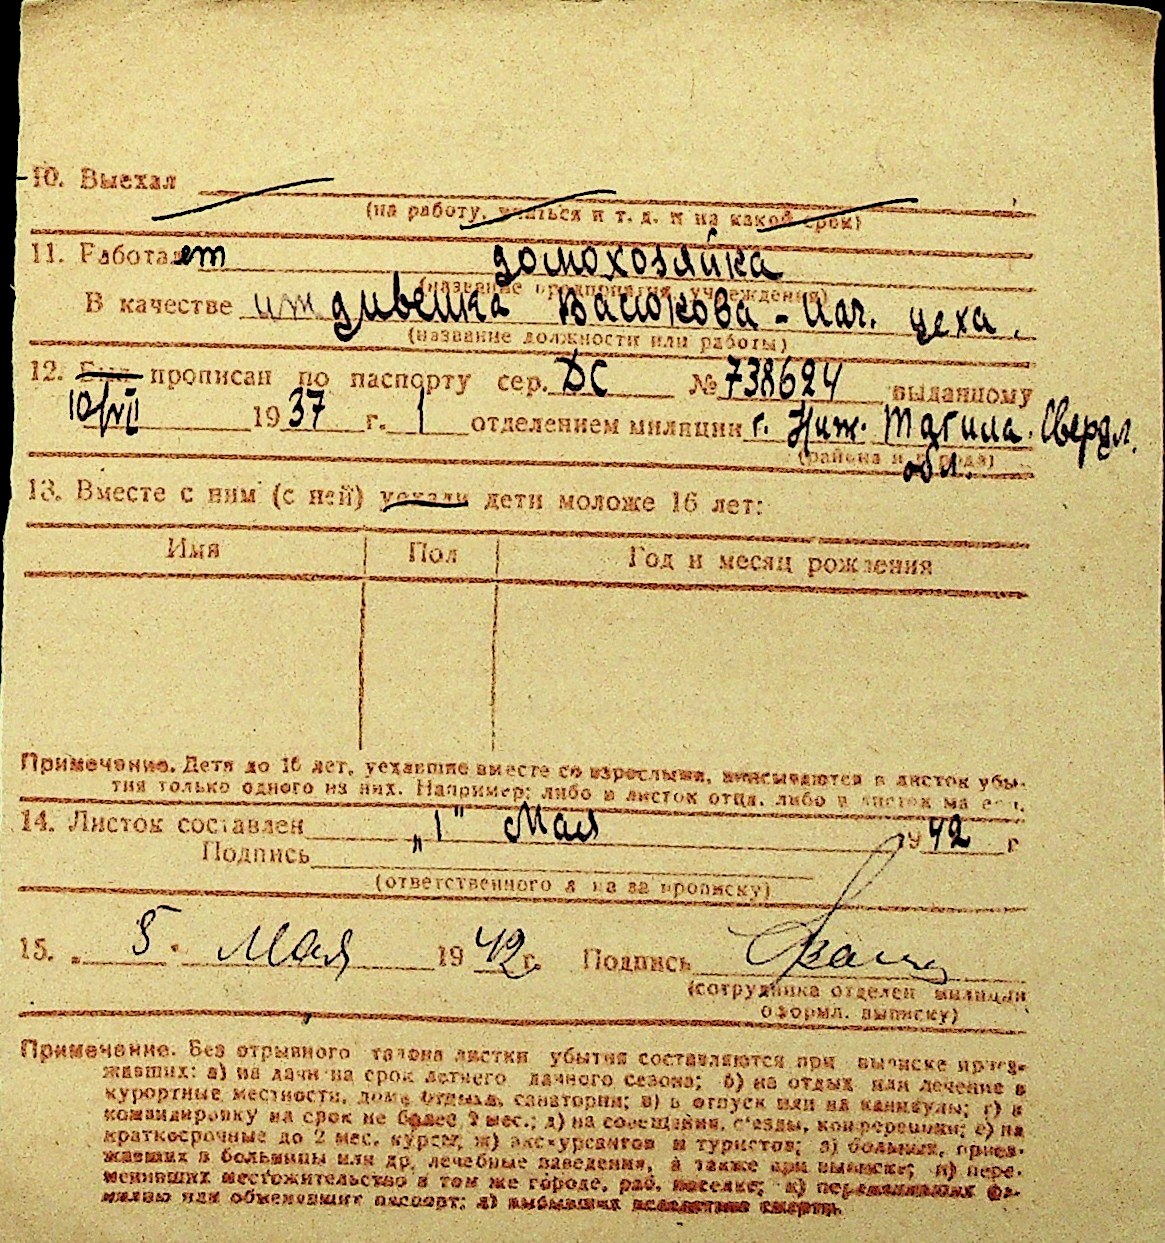 10. Выехал
(на работу, учиться и т. д. и на какой срок)
11. Работает домохозяйка
(название предприятия учреждения)
В качестве иждивенка Васюкова - нач. цеха.
(название должности или работы)
12. Был прописан по паспорту сер. ДС № 738624 выданному
10/VII 1937 г. 1 отделением милиции г. Ниж. Тагила. Свердл.
(района и города) обл.
13. Вместе с ним (с ней) уехали дети моложе 16 лет:
Имя Пол Год и месяц рождения
Примечание. Дети до 16 лет, уехавшие вместе со взрослыми, вписываются в листок убы-
тия только одного из них. Например: либо в листок отца, либо в листок матери.
14. Листок составлен „1" Мая 1942 г
Подпись
(ответственного лица за прописку)
15. „5" Мая 1942 г. Подпись
(сотрудника отделен милиции
оформл. выписку)
Примечание. Без отрывного талона листки убытия составляются при выписке приез-
жавших: а) на дачи на срок летнего дачного сезона; б) на отдых или лечение в
курортные местности, дома отдыха, санатории; в) в отпуск или на каникулы; г) в
командировку на срок не более 2 мес.; д) на совещания, съезды, конференции; е) на
краткосрочные до 2 мес. курсы; ж) экскурсантов и туристов; з) больных, приез-
жавших в больницы или др. лечебные заведения, а также при выписке; и) пере-
менивших местожительство в том же городе, раб. поселке; к) переменивших фа-
милию или обменявших паспорт; л) выбывших вследствие смерти.